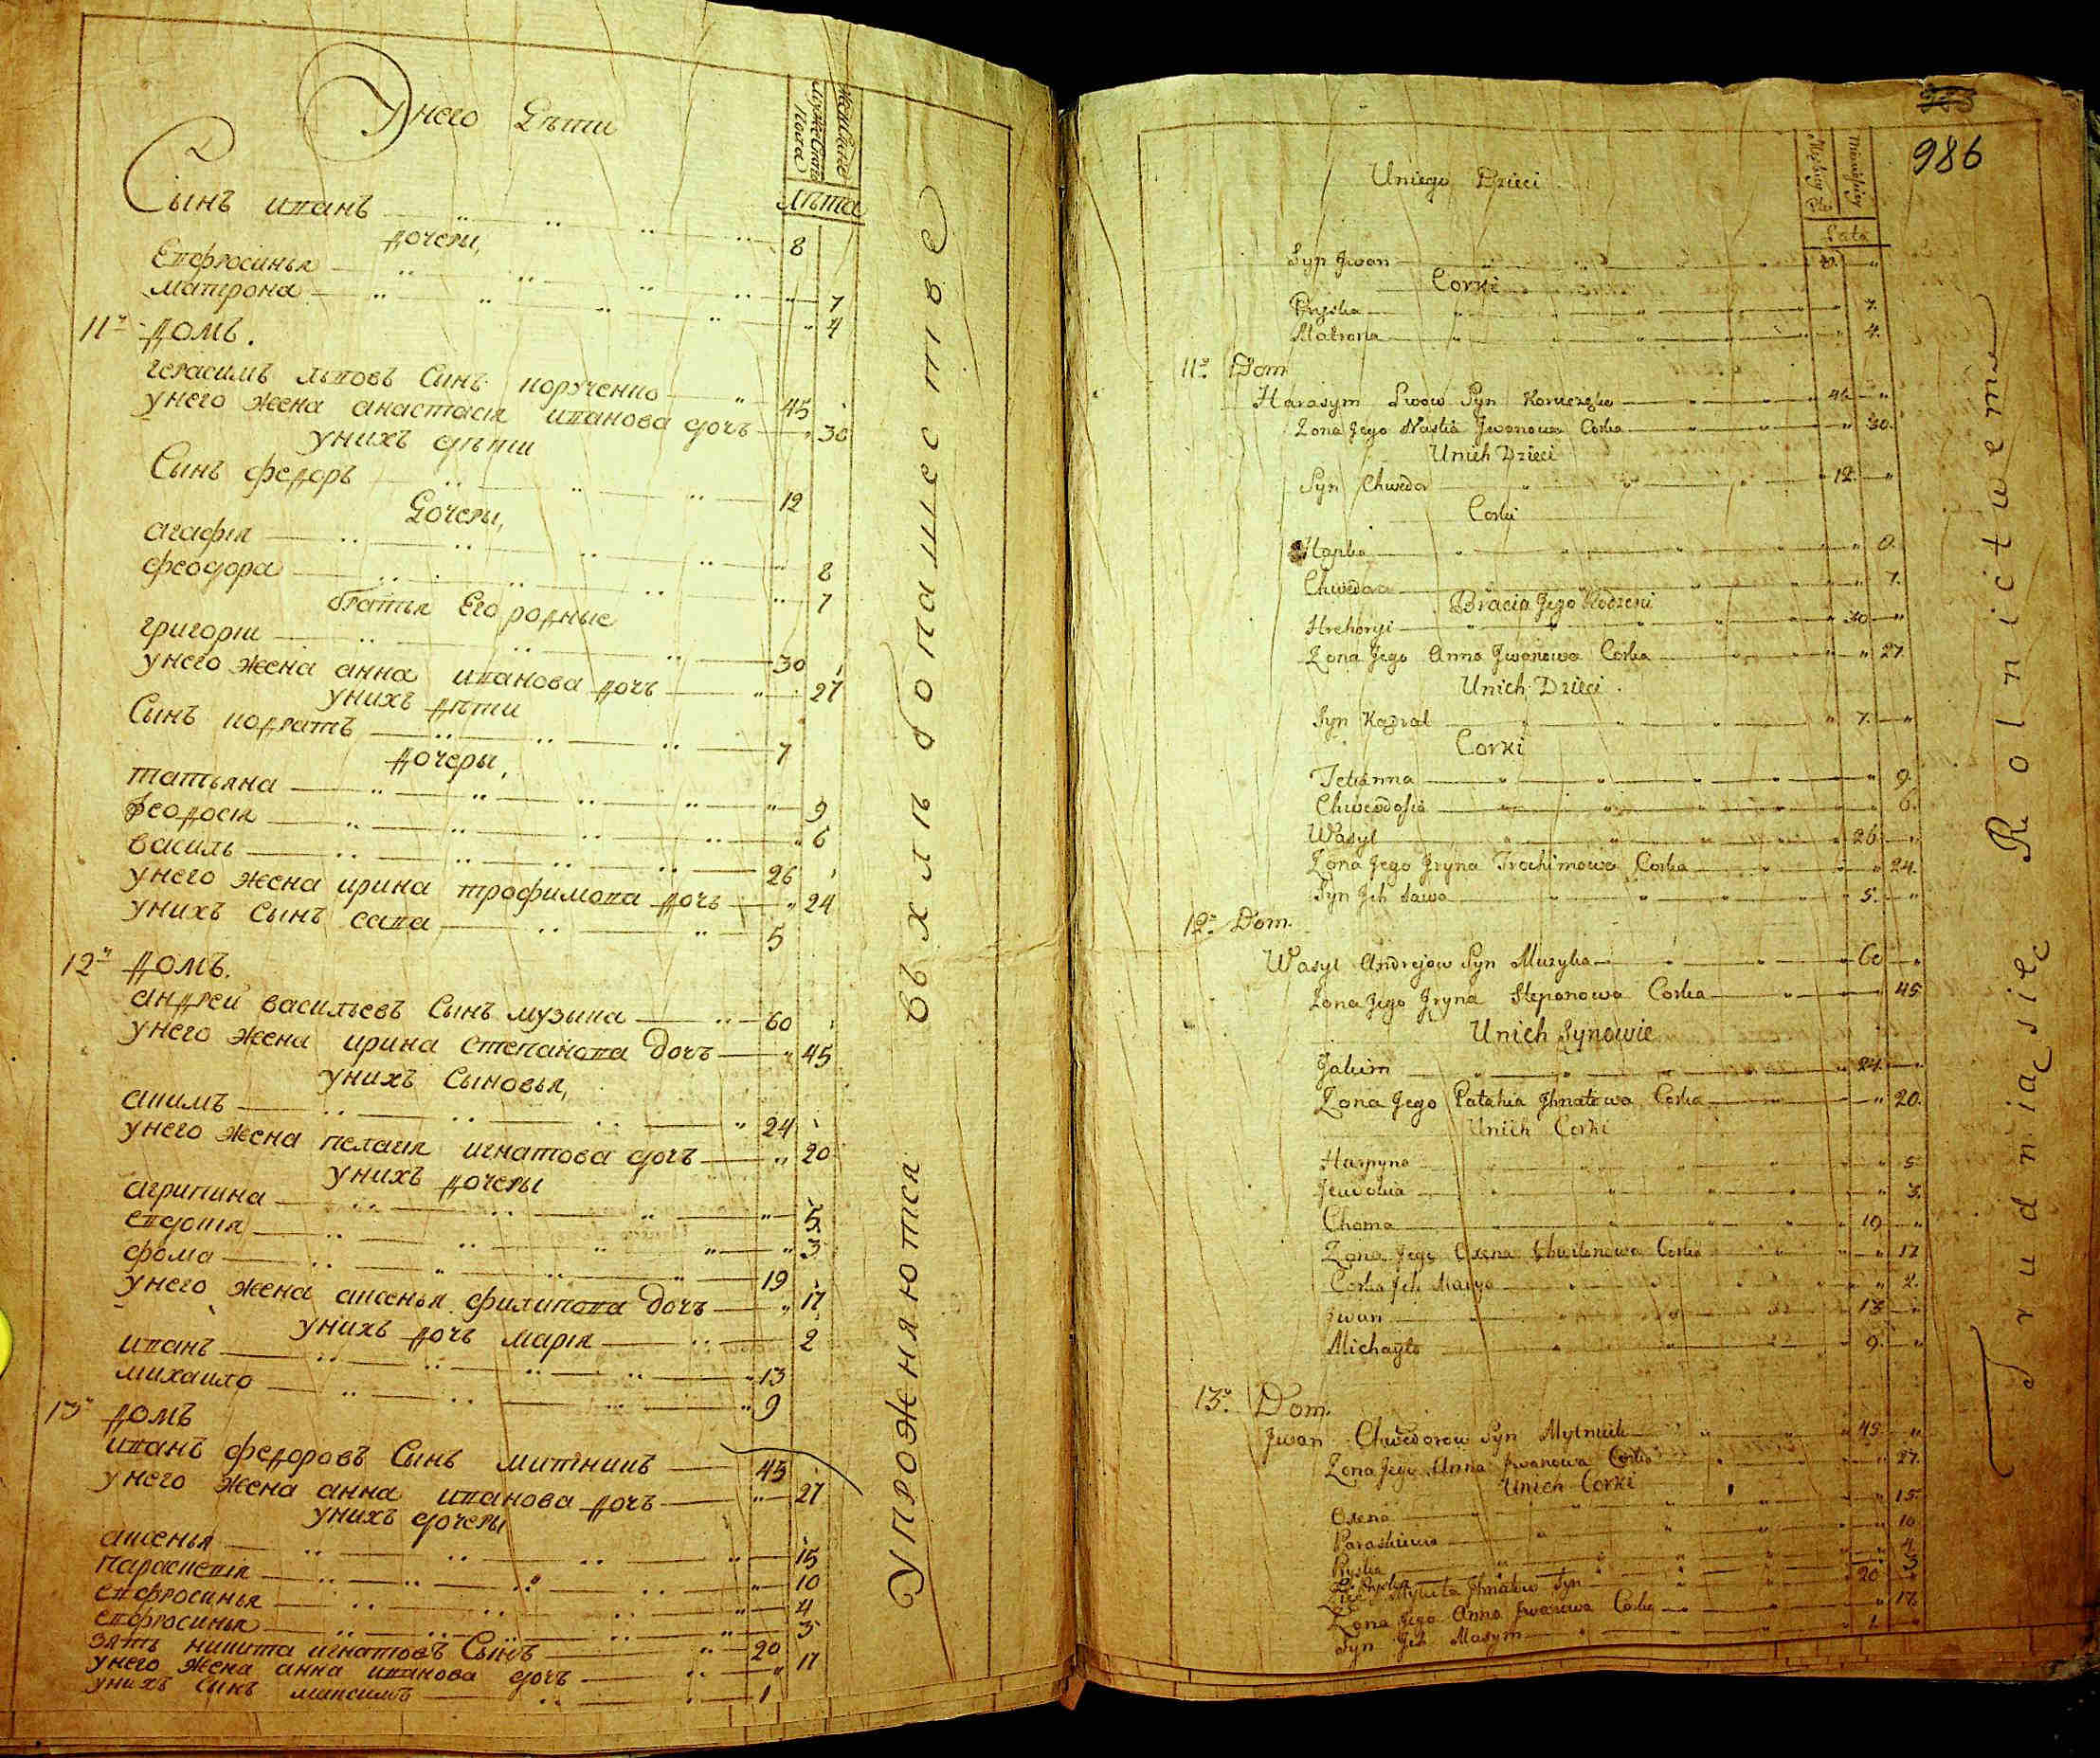 У него Дѣти
Мужеска Пола
Женска
Лѣта
Сынъ иванъ 8
дочери,
Евфросинья 7
матрона 4
11й домъ.
герасимъ львовъ Синъ 45
унего жена анастасія иванова дочь 30
унихъ дѣти
Сынъ федоръ 12
Дочери,
агафія 8
феодора 7
братья Его родные
григории 30
унего жена анна иванова дочь 27
унихъ дѣти
Сынъ кодратъ 7
дочери,
татьяна 9
феодосія 6
василь 26
унего жена ирина трофимова дочь 24
унихъ Сынъ сава 5
12й домъ.
андреи васильевъ Сынъ музыка 60
унего жена ирина степанова дочь 45
унихъ Сыновья,
акимъ 24
унего жена пелагія игнатова дочь 20
унихъ дочеры
агрипина 5
евдокія 3
фома 19
унего жена аксенья филипова дочь 17
унихъ дочь марія 2
иванъ 13
михаило 9
13й домъ
иванъ федоровъ Сынъ митникъ 45
унего жена анна иванова дочь 27
унихъ дочеры
аксенья 15
параскевія 10
евфросинья 4
евфросинья 3
зять никита игнатовъ Сынъ 20
унего жена анна иванова дочь 17
унихъ Сынъ максимъ 1
Упрожняются въ хлѣбопашестве
986
Uniego Dzieci
Lata
Syn Jwan 8. "
Corki
Pryska 7.
Matrona 4.
11o. Dom
Harasym Lwow Syn 45 "
Zona Jego Nastia Jwanowa Corka 30.
Unich Dzieci
Syn Chwedor 12. "
Corki
Hapka 8.
Chwedora 7.
Bracia Jego Rodzeni
Hrehoryi 30 "
Zona Jego Anna Jwanowa Corka 27
Unich Dzieci
Syn Kadrat 7. "
Corki
Tetianna 9.
Chweodosia 6.
Wasyl 26. "
Zona Jego Jryna Trochimowa Corka 24.
Syn Jch Sawa 5. "
12o. Dom.
Wasyl Andrejow Syn Muzyka 60 "
Zona Jego Jryna Stepanowa Corka 45
Unich Synowie
Jakim 24. "
Zona Jego Patahia Jhnatowa Corka 20.
Unich Corki
Harpyna 5
Jewdokia 3.
Choma 19 "
Zona Jego Oxena Chwilonowa Corka 17
Corka Jch Marya 2.
Jwan 13 "
Michayło 9. "
13o. Dom.
Jwan Chwedorow Syn Mytnik 45 "
Zona Jego Anna Jwanowa Corka 27.
Unich Corki
Oxena 15
Paraskiewia 10
Pryska 4
Pryska 3
Zięć Mykita Jhnatow Syn 20 "
Zona Jego Anna Jwanowa Corka 17
Syn Jch Maxym 1. "
Trudniąsię Rolnictwem